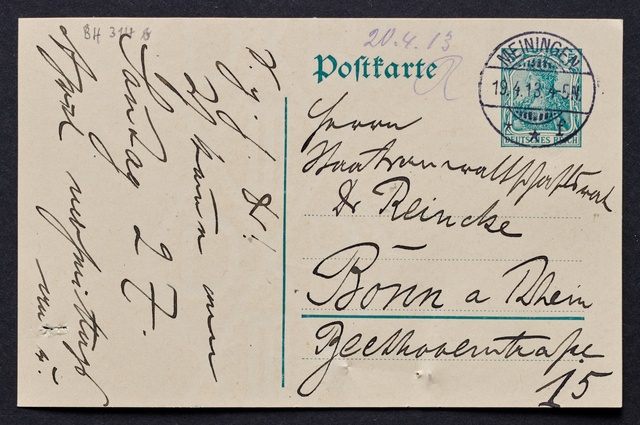 BH 314
20.4.13
Postkarte
MEININGEN
19.4.13 4-5N
DEUTSCHES REICH
Herrn
Staatsanwaltschaftsrat
Dr Reincke
Bonn a Rhein
Beethovenstraße
15
V. g. H. Dr!
kann nur
Sontag 27
April nachmittags